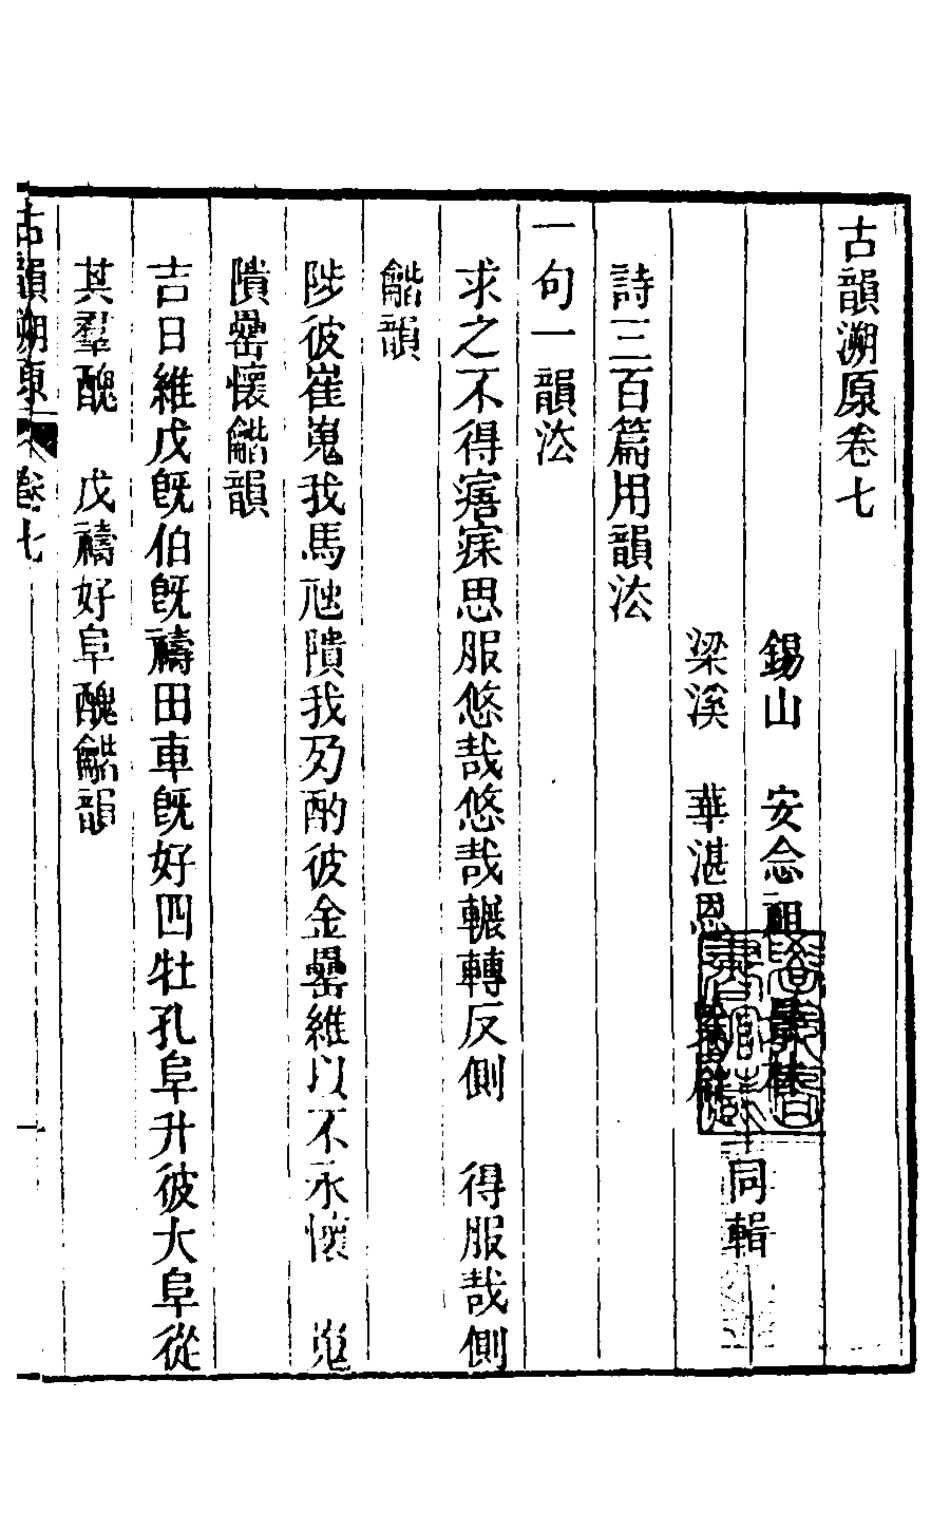 古韻溯原卷七
錫山　安念祖景林
梁溪　華湛恩
同輯
詩三百篇用韻法
一句一韻法
求之不得寤寐思服悠哉悠哉輾轉反側　得服哉側
龤韻
陟彼崔嵬我馬虺隤我夃酌彼金罍維以不永懷　嵬
隤罍懷龤韻
吉日維戊旣伯旣禱田車旣好四牡孔阜升彼大阜從
其羣醜　戊禱好阜醜龤韻
古韻溯原　卷七　一